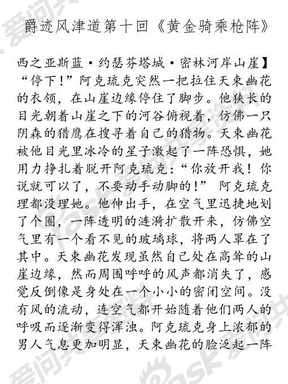 爵迹风津道第十回《黄金骑乘枪阵》
西之亚斯蓝·约瑟芬塔城·密林河岸山崖】
“停下！”阿克琉克突然一把拉住天束幽花
的衣领，在山崖边缘停住了脚步。他狭长的
目光朝着山崖之下的河谷俯视着，仿佛一只
阴森的猎鹰在搜寻着自己的猎物。天束幽花
被他目光里冰冷的星子激起了一阵恐惧，她
用力挣扎着脱开阿克琉克：“你放开我！你
说就可以了，不要动手动脚的！” 阿克琉克
理都没理她。他伸出手，在空气里迅捷地划
了个圈，一阵透明的涟漪扩散开来，仿佛空
气里有一个看不见的玻璃球，将两人罩在了
其中。天束幽花发现虽然自己处在高耸的山
崖边缘，然而周围呼呼的风声都消失了，感
觉反倒像是身处在一个小小的密闭空间。没
有风的流动，连空气都开始随着他们两人的
呼吸而逐渐变得浑浊。阿克琉克身上浓郁的
男人气息更加明显，天束幽花的脸泛起一阵